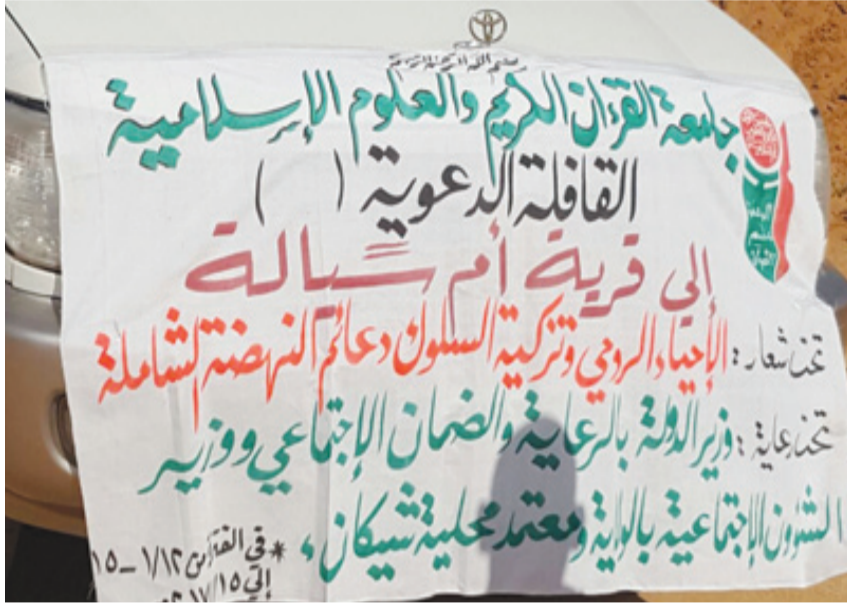 بسم الله الرحمن الرحيم
جامعة القرءان الكريم والعلوم الإسلامية
القافلة الدعوية (    )
إلي قرية أم سيالة
تحت شعار : الإحياء الروحي وتزكية السلوك دعائم النهضة الشاملة
تحت رعاية : وزير الدولة بالرعاية والضمان الإجتماعي ووزير
الشؤون الإجتماعية بالولاية ومعتمد محلية شيكان
* في الفترة من ١/١٢ – ١٥
إلي